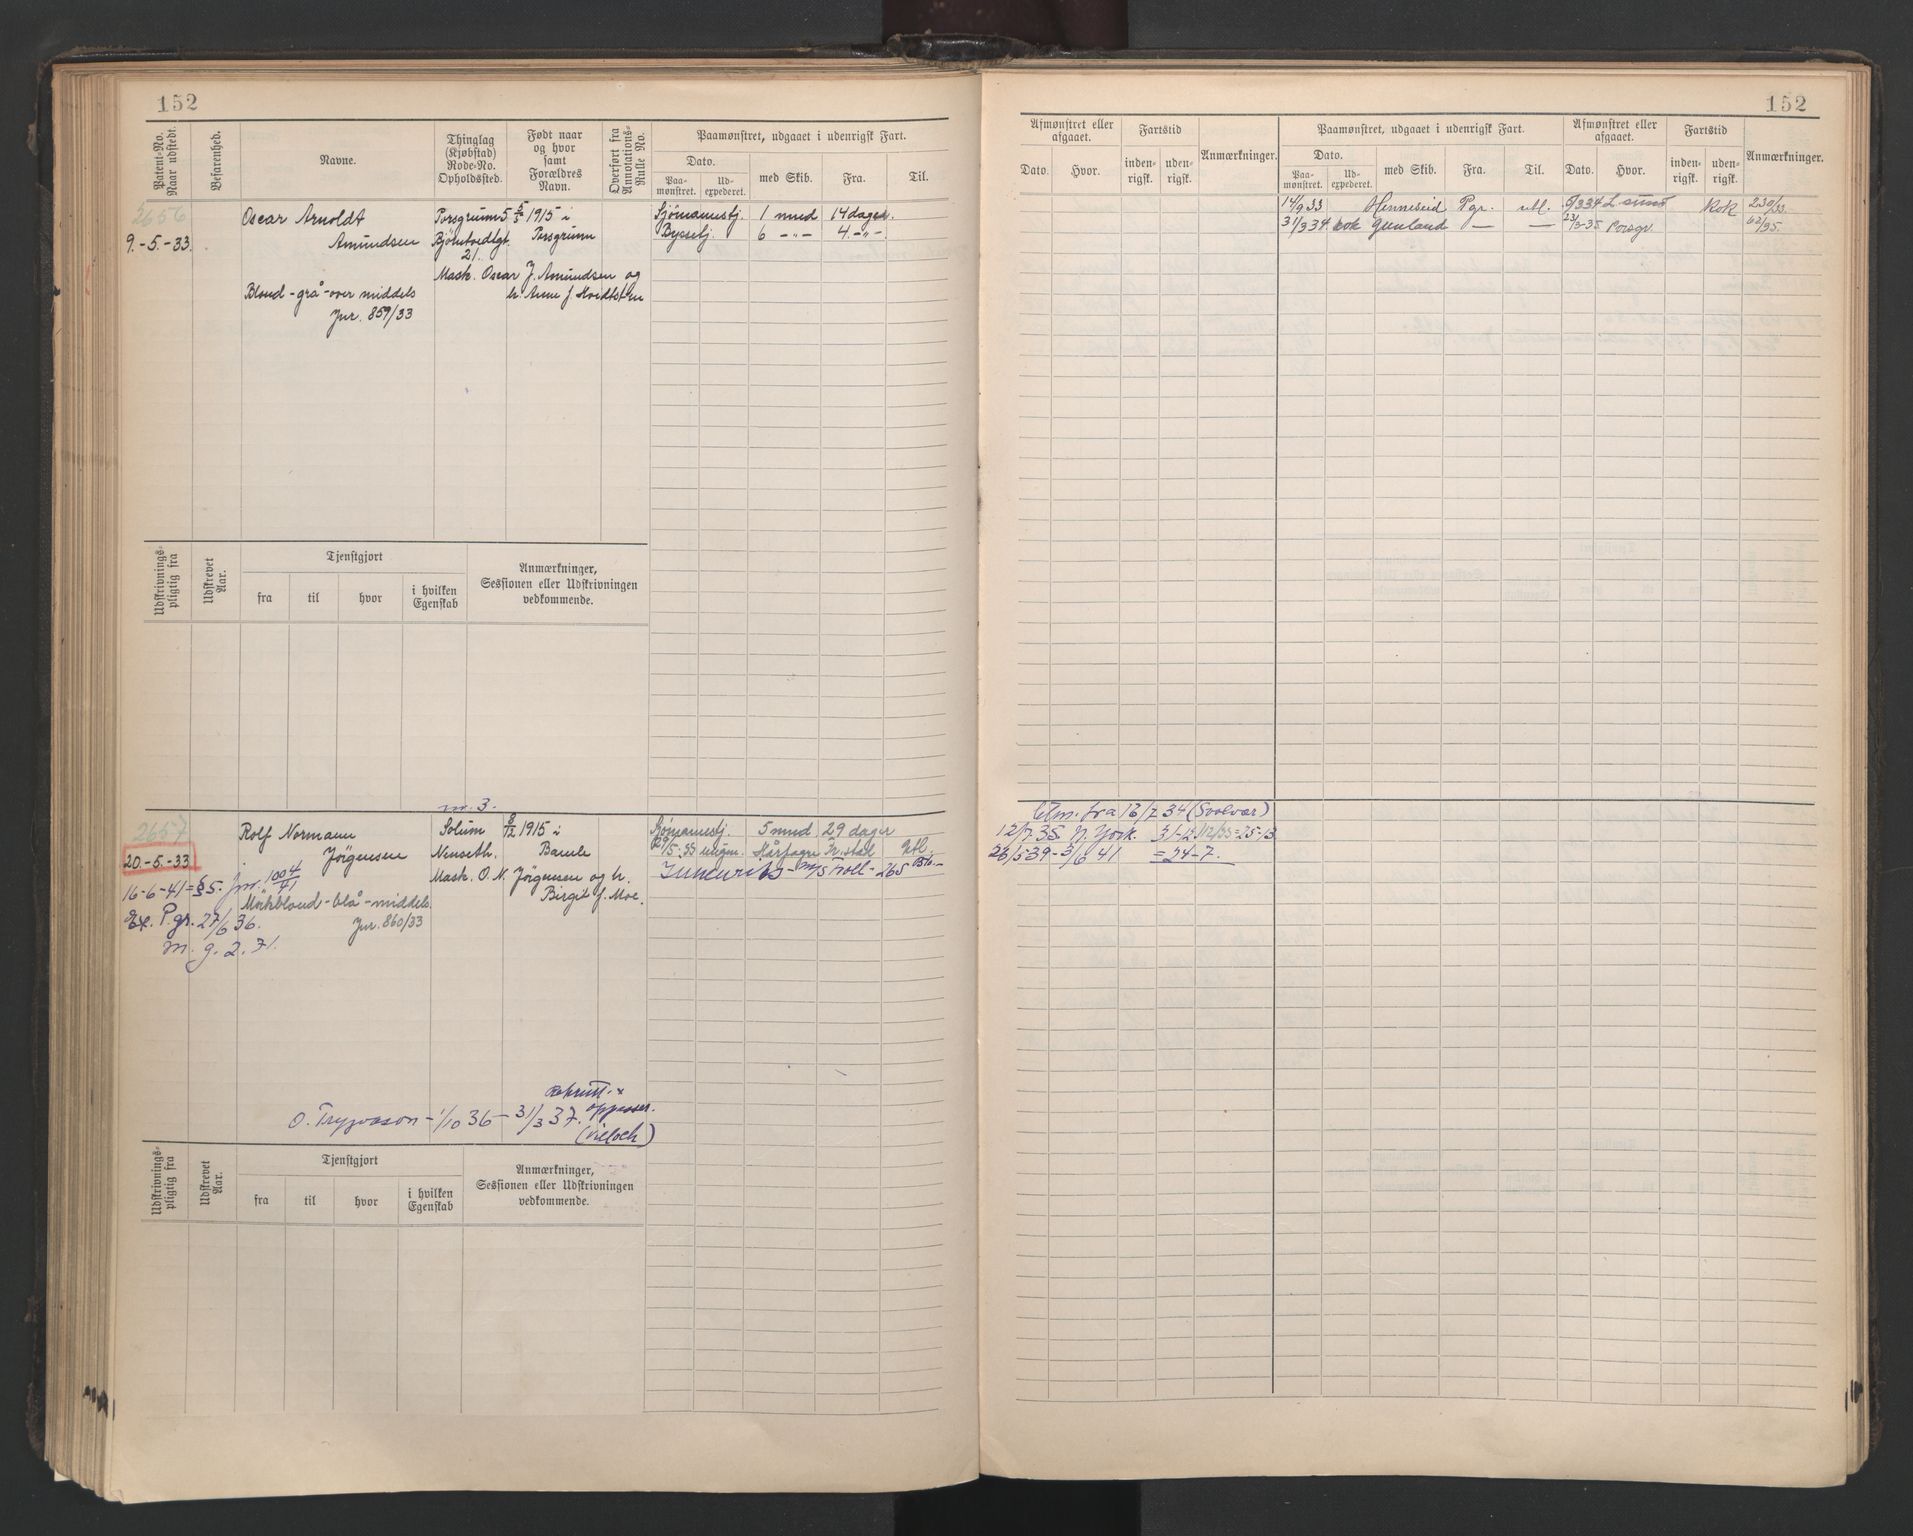 152
Patent-No. Naar udstedt.
Befarenhed.
Navne.
Thinglag (Kjøbstad) Rode-No. Opholdssted.
Født naar og hvor samt Forældres Navn.
Overført fra Annotations-Rulle No.
Paamønstret, udgaaet i udenrigsk Fart.
Dato.
Paa-mønstret.
Ud-expederet.
med Skib.
Fra.
Til.
2656
9.-5.-33.
Oscar Arnoldt
Amundsen
Porsgrunn 5 5/5 1915 i
Porsgrunn
21.
Mask. Oscar J. Amundsen og
h. Anne f. Hvidtsten
Blond - grå - over middels
Jnr. 859/33
Sjömannestj. 1 mnd 14 dager.
Byssetj. 6 -"- 4 -"-.
Udskrivnings-pligtig fra
Udskrevet Aar.
Tjenstgjort
fra
til
hvor
i hvilken Egenskab
Anmærkninger, Sessionen eller Udskrivningen vedkommende.
nr. 3.
2657
20.-5.-33
16-6-41 = §5. jnr. 1004/41
Ex. P.gr. 27/6 36.
m. g. 2. 71.
Rolf Normann
Jörgensen
Solum 8/12 1915 i
Nenseth. Bamle
Mask. O. N. Jörgensen og h.
Birgit f. Moe.
Mörkblond - blå - middels
Jnr. 860/33
Sjömannestj. 5 mnd 29 dager
29/5-33 ungm. Hårfagre Fr.stad Utl.
O. Tryvason - 1/10 36 - 31/3 37.
Udskrivnings-pligtig fra
Udskrevet Aar.
Tjenstgjort
fra
til
hvor
i hvilken Egenskab
Anmærkninger, Sessionen eller Udskrivningen vedkommende.
152
Afmønstret eller afgaaet.
Dato.
Hvor.
Fartstid
inden-rigsk.
uden-rigsk.
Anmærkninger.
Paamønstret, udgaaet i udenrigsk Fart.
Dato.
Paa-mønstret.
Ud-expederet.
med Skib.
Fra.
Til.
Afmønstret eller afgaaet.
Dato.
Hvor.
Fartstid
inden-rigsk.
uden-rigsk.
Anmærkninger.
14/9 33 Henneseid Pgr. utl. L.sund Kok 230/33.
31/3 34 kok Gunland — — 23/3-35 Porsgr. 62/35.
Utm. fra 16/7 34 (Svolvær)
12/7 35. N. York.
26/5 39 - 3/6 41 = 24-7.